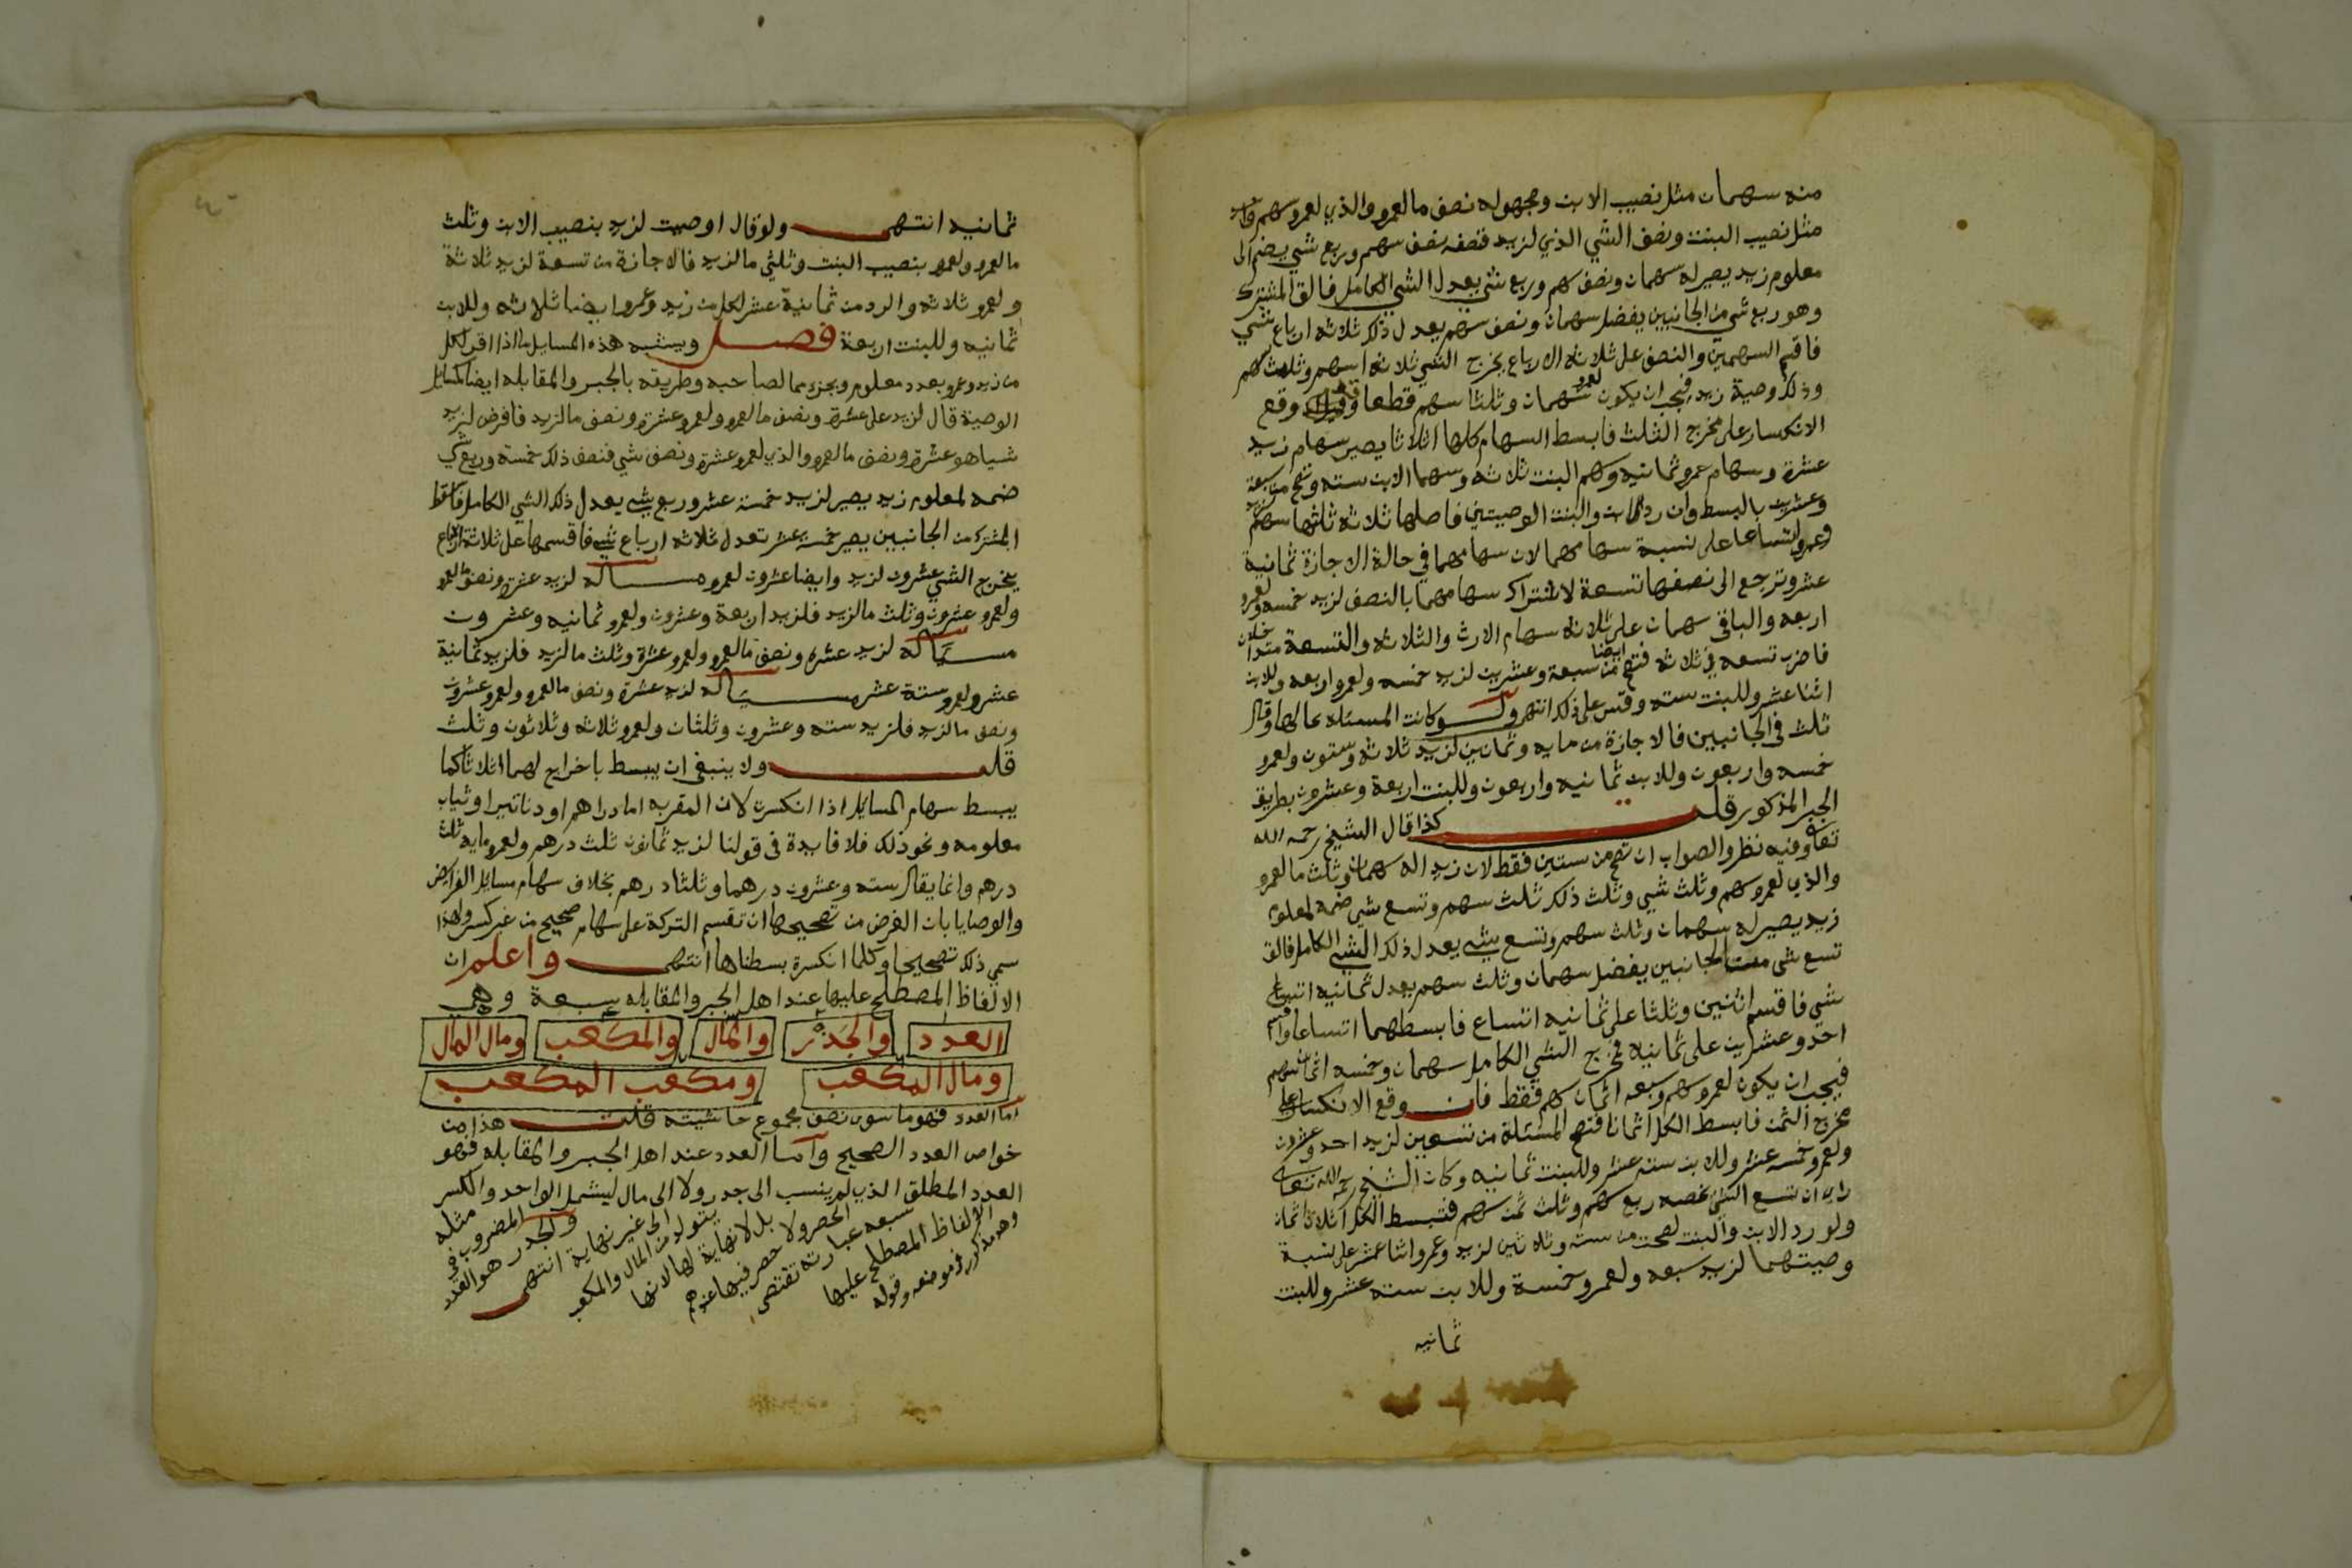 منه سهمان مثل نصيب الابن ومجهوله نصف ما لعمرو والذي لعمرو سهم واحد
مثل نصيب البنت ونصف الشي الذي لزيد فنصفه نصف سهم وربع شي يضم الى
معلوم زيد يصير له سهمان ونصف سهم وربع شي يعدل الشي الكامل فالق المشترك
وهو ربع شي من الجانبين يفضل سهمان ونصف سهم يعدل ذلك ثلاثه ارباع شي
فاقسم السهمين والنصف على ثلاثه الارباع يخرج الشي ثلاثه اسهم وثلث سهم
وذلك وصية زيد فيجب ان يكون لعمرو سهمان وثلثا سهم قطعا وقد وقع
الانكسار على مخرج الثلث فابسط السهام كلها اثلاثا يصير سهام زيد
عشرة وسهام عمرو ثمانيه وسهم البنت ثلاثه وسهما الابن سته وتصح من سبعة
وعشرين بالبسط وان رد الابن والبنت الوصيتين فاصلها ثلاثه ثلثها سهم لزيد
وعمرو اتساعا على نسبة سهامهما لان سهامهما في حالة الاجازة ثمانية
عشر وترجع الى نصفها تسعة لاشتراك سهامهما بالنصف لزيد خمسه ولعمرو
اربعه والباقي سهمان على ثلاثه سهام الارث والثلاثه والتسعة متداخلان
فاضرب تسعه في ثلاثه فتصح ايضا من سبعة وعشرين لزيد خمسه ولعمرو اربعه وللابن
اثنا عشر وللبنت سته وقس على ذلك انتهى ولو كانت المسئله بحالها وقال
ثلث في الجانبين فالاجازة من مايه وثمانين لزيد ثلاثه وستون ولعمرو
خمسه واربعون وللابن ثمانيه واربعون وللبنت اربعة وعشرون بطريق
الجبر المذكور قلت كذا قال الشيخ رحمه الله
تعالى وفيه نظر والصواب ان تصح من ستين فقط لان زيدا له سهمان وثلث ما لعمرو
والذي لعمرو سهم وثلث شي وثلث ذلك ثلث سهم وتسع شي ضمه لمعلوم
زيد يصير له سهمان وثلث سهم وتسع شي يعدل ذلك الشي الكامل فالق
تسع شي من الجانبين يفضل سهمان وثلث سهم يعدل ثمانيه اتساع
شي فاقسم اثنين وثلثا على ثمانيه اتساع فابسطهما اتساعا واقسم
احد وعشرين على ثمانيه فخرج الشي الكامل سهمان وخمسه اثمان سهم
فيجب ان يكون لعمرو سهم وسبعه اثمان سهم فقط فان وقع الانكسار على
مخرج الثمن فابسط الكل اثمانا فتصح المسئلة من ستين لزيد احد وعشرون
ولعمرو خمسه عشر وللابن سته عشر وللبنت ثمانيه وكان الشيخ رحمه الله تعالى
راى ان تسع الشي خصه ربع سهم وثلث ثمن سهم فتبسط الكل اثلاث اثمان
ولو رد الابن والبنت لصحت من سته وثلاثين لزيد وعمرو اثنا عشر على نسبة
وصيتهما لزيد سبعه ولعمرو خمسة وللابن سته عشر وللبنت
ثمانيه
ثمانيه انتهى ولو قال اوصيت لزيد بنصيب الابن وثلث
ما لعمرو ولعمرو بنصيب البنت وثلثي ما لزيد فالاجازة من تسعة لزيد ثلاثة
ولعمرو ثلاثه والرد من ثمانية عشر لكل من زيد وعمرو ايضا ثلاثه وللابن
ثمانيه وللبنت اربعة فصل ويشبه هذه المسايل ما اذا اقر لكل
من زيد وعمرو بعدد معلوم وبجزء مما لصاحبه وطريقه بالجبر والمقابله ايضا كمسايل
الوصية قال لزيد علي عشرة ونصف ما لعمرو ولعمرو عشرة ونصف ما لزيد فافرض لزيد
شيا هو عشرة ونصف ما لعمرو والذي لعمرو عشرة ونصف شي فنصف ذلك خمسة وربع شي
ضمه لمعلوم زيد يصير لزيد خمسة عشر وربع شي يعدل ذلك الشي الكامل فاسقط
المشترك من الجانبين يصير خمسة عشر تعدل ثلاثه ارباع شي فاقسمها على ثلاثة ارباع
يخرج الشي عشرون لزيد وايضا عشرون لعمرو مسالة لزيد عشرة ونصف ما لعمرو
ولعمرو عشرون وثلث ما لزيد فلزيد اربعة وعشرون ولعمرو ثمانيه وعشرون
مسالة لزيد عشرة ونصف ما لعمرو ولعمرو عشرة وثلث ما لزيد فلزيد ثمانية
عشر ولعمرو ستة عشر مسالة لزيد عشرة ونصف ما لعمرو ولعمرو عشرون
ونصف ما لزيد فلزيد سته وعشرون وثلثان ولعمرو ثلاثه وثلاثون وثلث
قلت ولا ينبغي ان يبسط باخراج لهما اثلاثا كما
يبسط سهام المسايل اذا انكسرت لان المقر به اما دراهم او دنانير او ثياب
معلومه ونحو ذلك فلا فايدة في قولنا لزيد ثمانون ثلث درهم ولعمرو مايه ثلث
درهم وانما يقال سته وعشرون درهما وثلثا درهم بخلاف سهام مسايل الفرايض
والوصايا بان الغرض من تصحيحها ان تقسم التركة على سهام صحيح من غير كسر ولهذا
سمي ذلك تصحيحا وكلما انكسرة بسطناها انتهى واعلم ان
الالفاظ المصطلح عليها عند اهل الجبر والمقابله سبعة وهي
العدد والجذر والمال والمكعب ومال المال
ومال المكعب ومكعب المكعب
اما العدد فهو ما سوى نصف مجموع حاشيته قلت هذا من
خواص العدد الصحيح واما العدد عند اهل الجبر والمقابله فهو
العدد المطلق الذي لم ينسب الى جدر ولا الى مال ليشمل الواحد والكسر
وهو مذكور في موضعه وقوله
الالفاظ المصطلح عليها
سبعه عبارته تقتضي
الحصر ولا حصر فيها عندهم
بل لا نهاية لها لانها
يتولد من المال والمكعب
الى غير نهاية انتهى
والجدر هو العدد
المضروب في
مثله